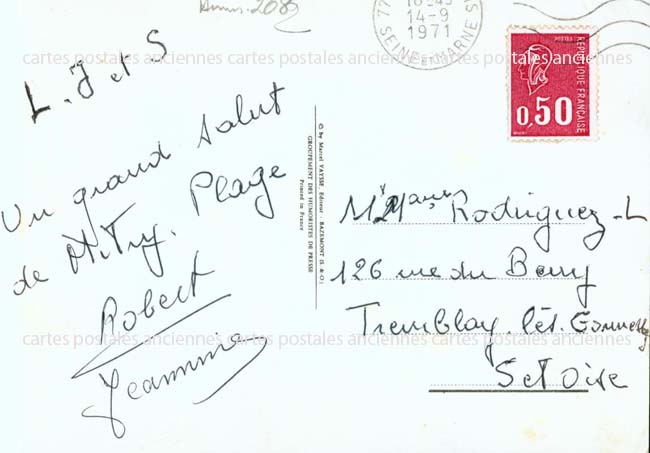 Annis. 2085
18-45
14-9
1971
77
SEINE-ET-MARNE
POSTES
REPUBLIQUE FRANÇAISE
0,50
cartes postales anciennes cartes postales anciennes cartes postales anciennes
L. J et S
Un grand salut
de Mitry. Plage
Robert
Jeannine
© by Marcel VAYSSE, Editeur - BAZEMONT (S.-&-O.)
GROUPEMENT DES HUMORISTES DE PRESSE
Printed in France
Rodriguez - L
126 rue du Berry
Tremblay. lès. Gonnesse
S et Oise
cartes postales anciennes cartes postales anciennes cartes postales anciennes